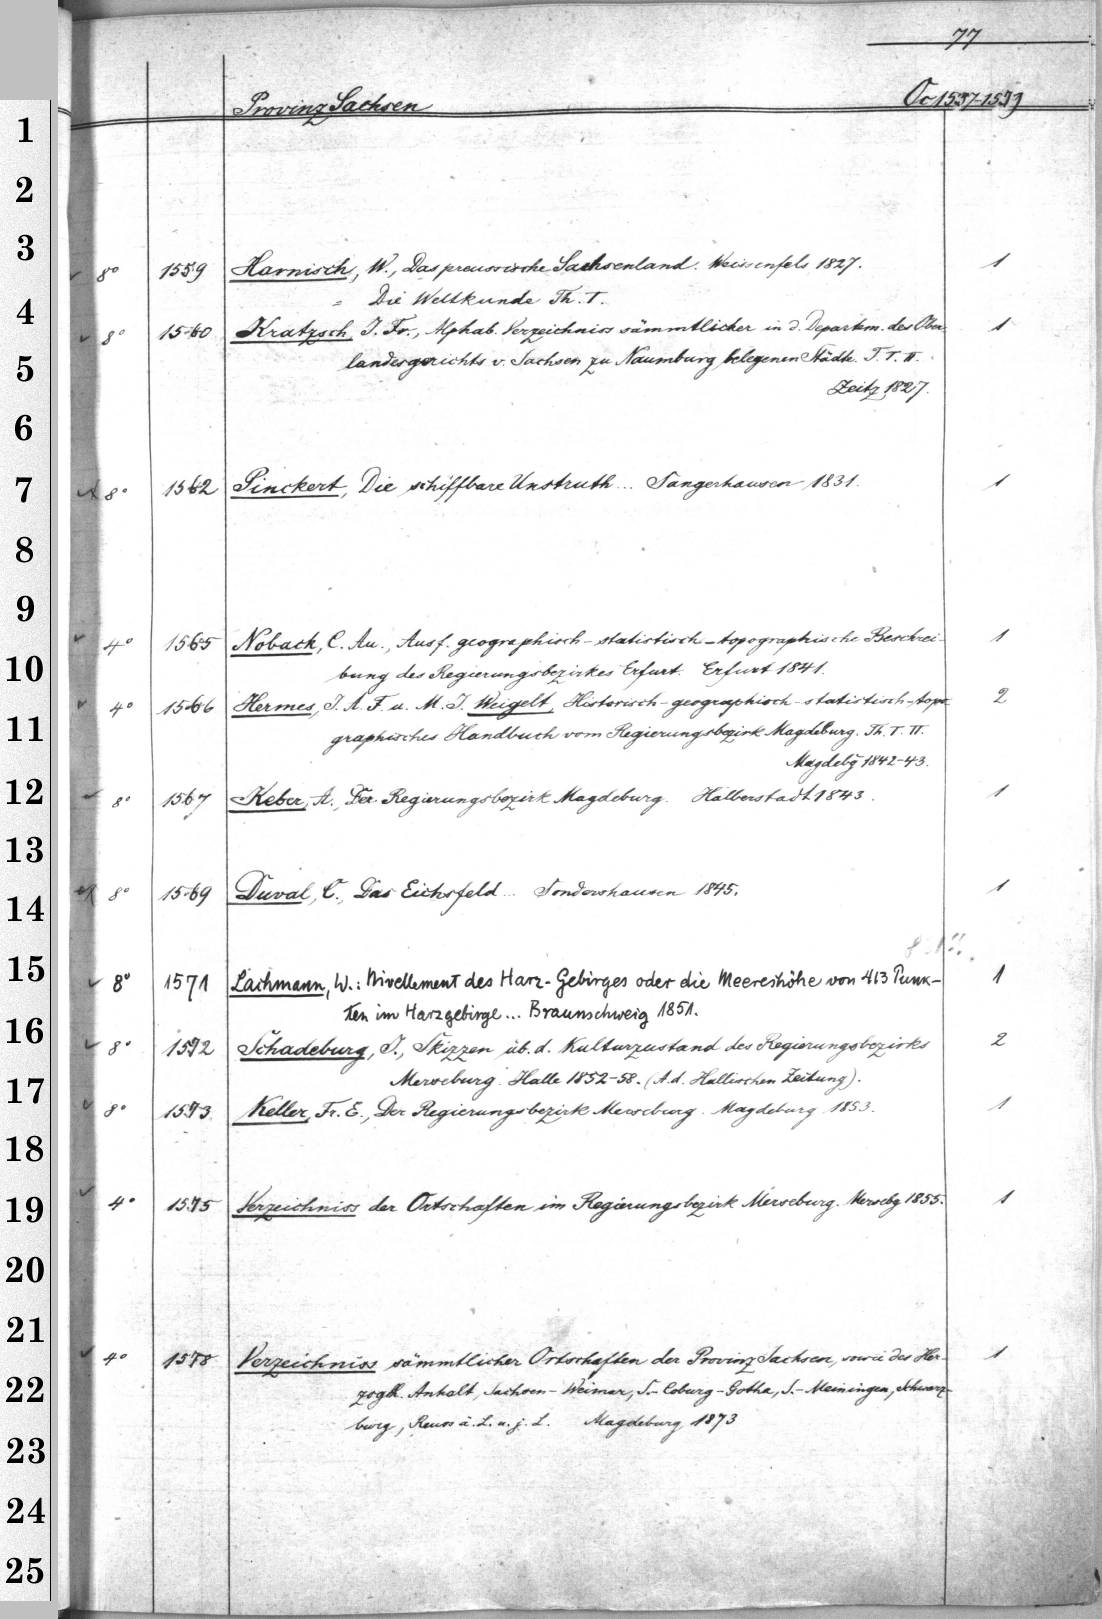 77
Provinz Sachsen Oc 1537-1579
1
2
3
8° 1559 Harnisch, W., Das preussische Sachsenland. Weissenfels 1827. 1
= Die Weltkunde Th. I.
4
8° 1560 Kratzsch, J. Fr., Alphab. Verzeichniss sämmtlicher in d. Departem. des Ober- 1
5
landesgerichts v. Sachsen zu Naumburg belegenen Städte. T. I. II.
Zeitz 1827.
6
7
8° 1562 Pinckert, Die schiffbare Unstruth... Sangerhausen 1831. 1
8
9
4° 1565 Noback, C. Au., Ausf. geographisch-statistisch-topographische Beschrei- 1
10
bung des Regierungsbezirkes Erfurt. Erfurt 1841.
4° 1566 Hermes, J. A. F. u. M. J. Weigelt, Historisch-geographisch-statistisch-topo- 2
11
graphisches Handbuch vom Regierungsbezirk Magdeburg. Th. I. II.
Magdebg 1842-43.
12
8° 1567 Keber, A., Der Regierungsbezirk Magdeburg. Halberstadt 1843. 1
13
14
8° 1569 Duval, C., Das Eichsfeld... Sondershausen 1845. 1
15
8° 1571 Lachmann, W.: Nivellement des Harz-Gebirges oder die Meereshöhe von 413 Punk- 1
ten im Harzgebirge... Braunschweig 1851.
16
8° 1572 Schadeburg, J., Skizzen üb. d. Kulturzustand des Regierungsbezirks 2
Merseburg. Halle 1852-58. (A. d. Hallischen Zeitung).
17
8° 1573 Keller, Fr. E., Der Regierungsbezirk Merseburg. Magdeburg 1853. 1
18
19
4° 1575 Verzeichniss der Ortschaften im Regierungsbezirk Merseburg. Mersebg 1855. 1
20
21
4° 1578 Verzeichniss sämmtlicher Ortschaften der Provinz Sachsen, sowie des Her- 1
22
zogth. Anhalt, Sachsen-Weimar, S.-Coburg-Gotha, S.-Meiningen, Schwarz-
burg, Reuss ä. L. u. j. L. Magdeburg 1873
23
24
25